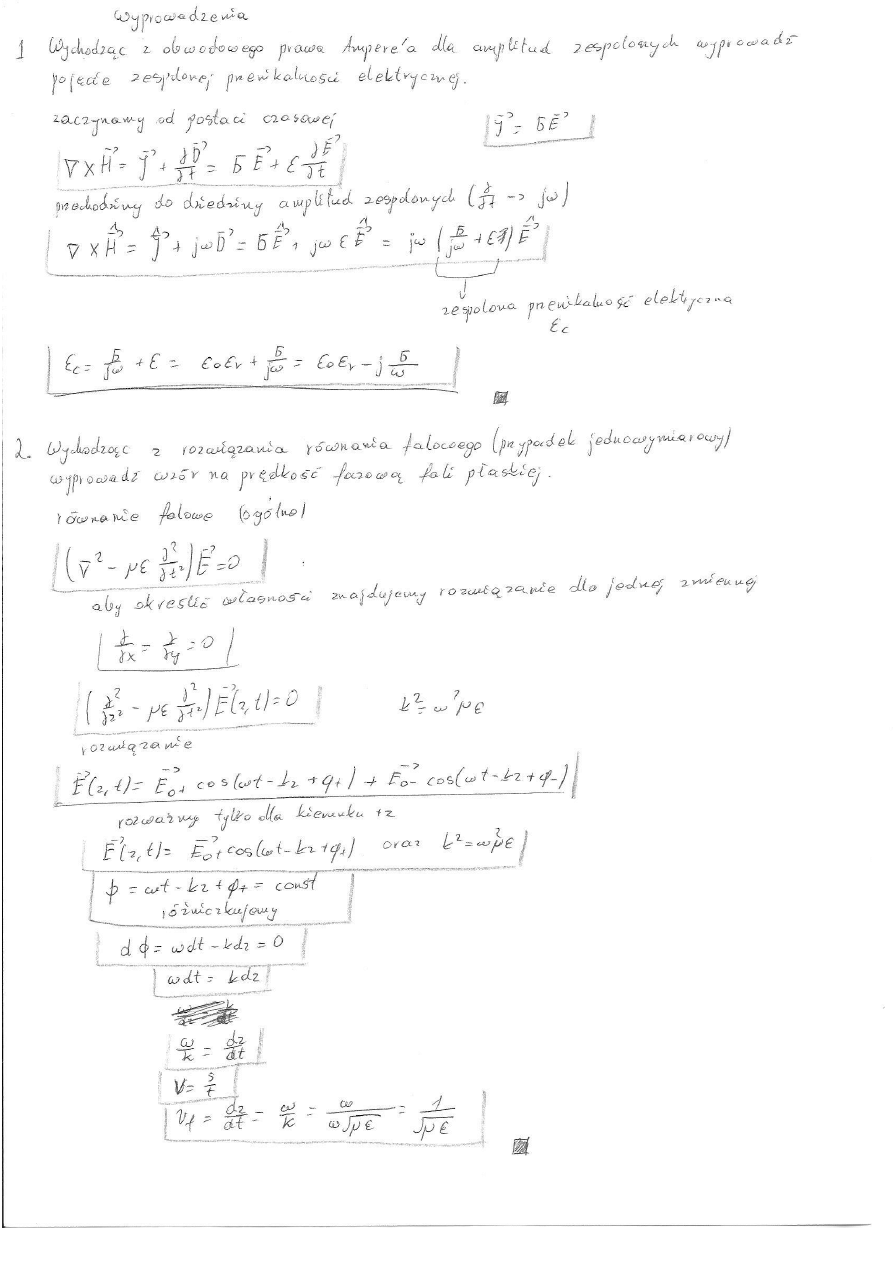 Wyprowadzenia
1 Wychodząc z obwodowego prawa Ampere'a dla amplitud zespolonych wyprowadź
pojęcie zespolonej przenikalności elektrycznej.
zaczynamy od postaci czasowej
J⃗ = σE⃗
∇×H⃗ = J⃗ + ∂D⃗/∂t = σE⃗ + ε ∂E⃗/∂t
przechodzimy do dziedziny amplitud zespolonych (∂/∂t -> jω)
∇×Ĥ⃗ = Ĵ⃗ + jωD⃗ = σÊ⃗ + jωεÊ⃗ = jω(σ/jω + ε)Ê⃗
zespolona przenikalność elektryczna
εc
εc = σ/jω + ε = ε0εr + σ/jω = ε0εr - j σ/ω
2. Wychodząc z rozwiązania równania falowego (przypadek jednowymiarowy)
wyprowadź wzór na prędkość fazową fali płaskiej.
równanie falowe (ogólne)
(∇² - με ∂²/∂t²)E⃗ = 0
aby określić własności znajdujemy rozwiązanie dla jednej zmiennej
∂/∂x = ∂/∂y = 0
(∂²/∂z² - με ∂²/∂t²)E⃗(z,t) = 0
k² = ω²με
rozwiązanie
E⃗(z,t) = E⃗0+ cos(ωt-kz+φ+) + E⃗0- cos(ωt-kz+φ-)
rozważmy tylko dla kierunku +z
E⃗(z,t) = E⃗0+ cos(ωt-kz+φ+) oraz k² = ω²με
ϕ = ωt - kz + φ+ = const
różniczkujemy
dϕ = ωdt - kdz = 0
ωdt = kdz
ω/k = dz/dt
V = s/t
Vf = dz/dt = ω/k = ω/ω√με = 1/√με